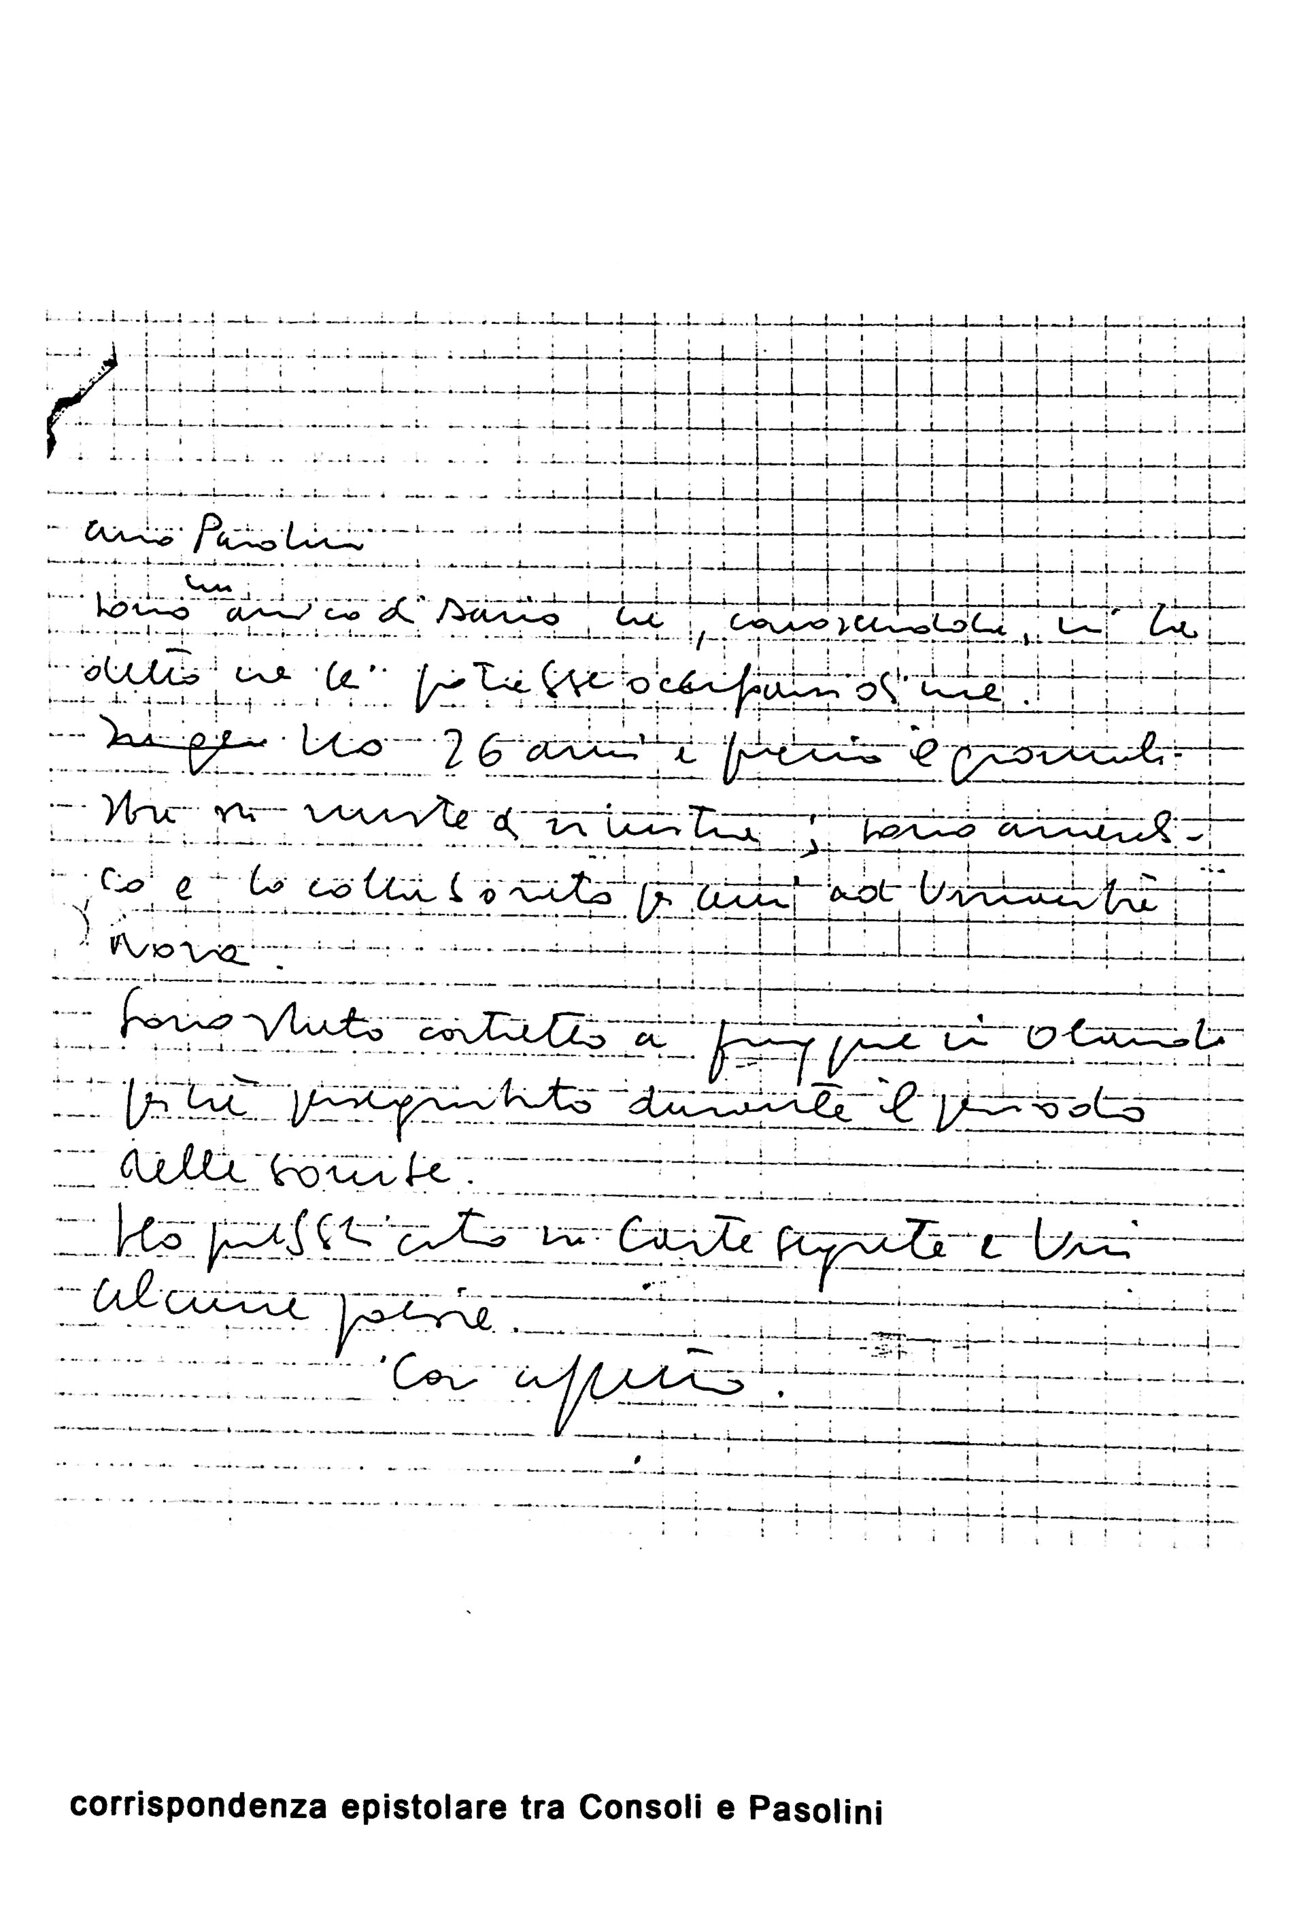 caro Pasolini
sono un amico di Dario che, conoscendola, mi ha
detto che lei potrebbe occuparsi di me.
Ho 26 anni e faccio il giornali-
sta su riviste di sinistra; sono anarchi-
co e ho collaborato per anni ad Umanità
Nova.
Sono stato costretto a fuggire in Olanda
perché perseguitato durante il periodo
delle bombe.
Ho pubblicato su Carte segrete e
alcune poesie.
Con affetto.
corrispondenza epistolare tra Consoli e Pasolini